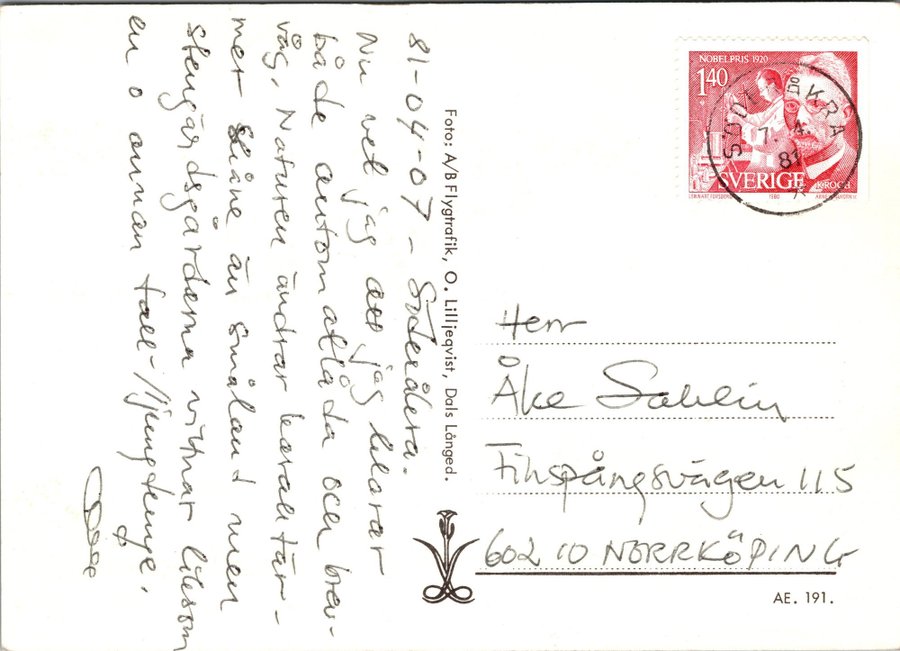 81-04-07 - Söderåkra.
Nu vet jag att jag klarar
både automatlåda och brev-
våg. Naturen ändrar karaktär -
mer Skåne än Småland men
stengärdsgårdarna vittnar liksom
en o annan tall-/ljungtenge.
Foto: A/B Flygtrafik, O. Lilljeqvist, Dals Långed.
NOBELPRIS 1920
1.40
SVERIGE
KROGH
1980
SÖDERÅKRA
7. 4.
81
Herr
Åke Sahlin
Finspångsvägen 115
602 10 NORRKÖPING
AE. 191.